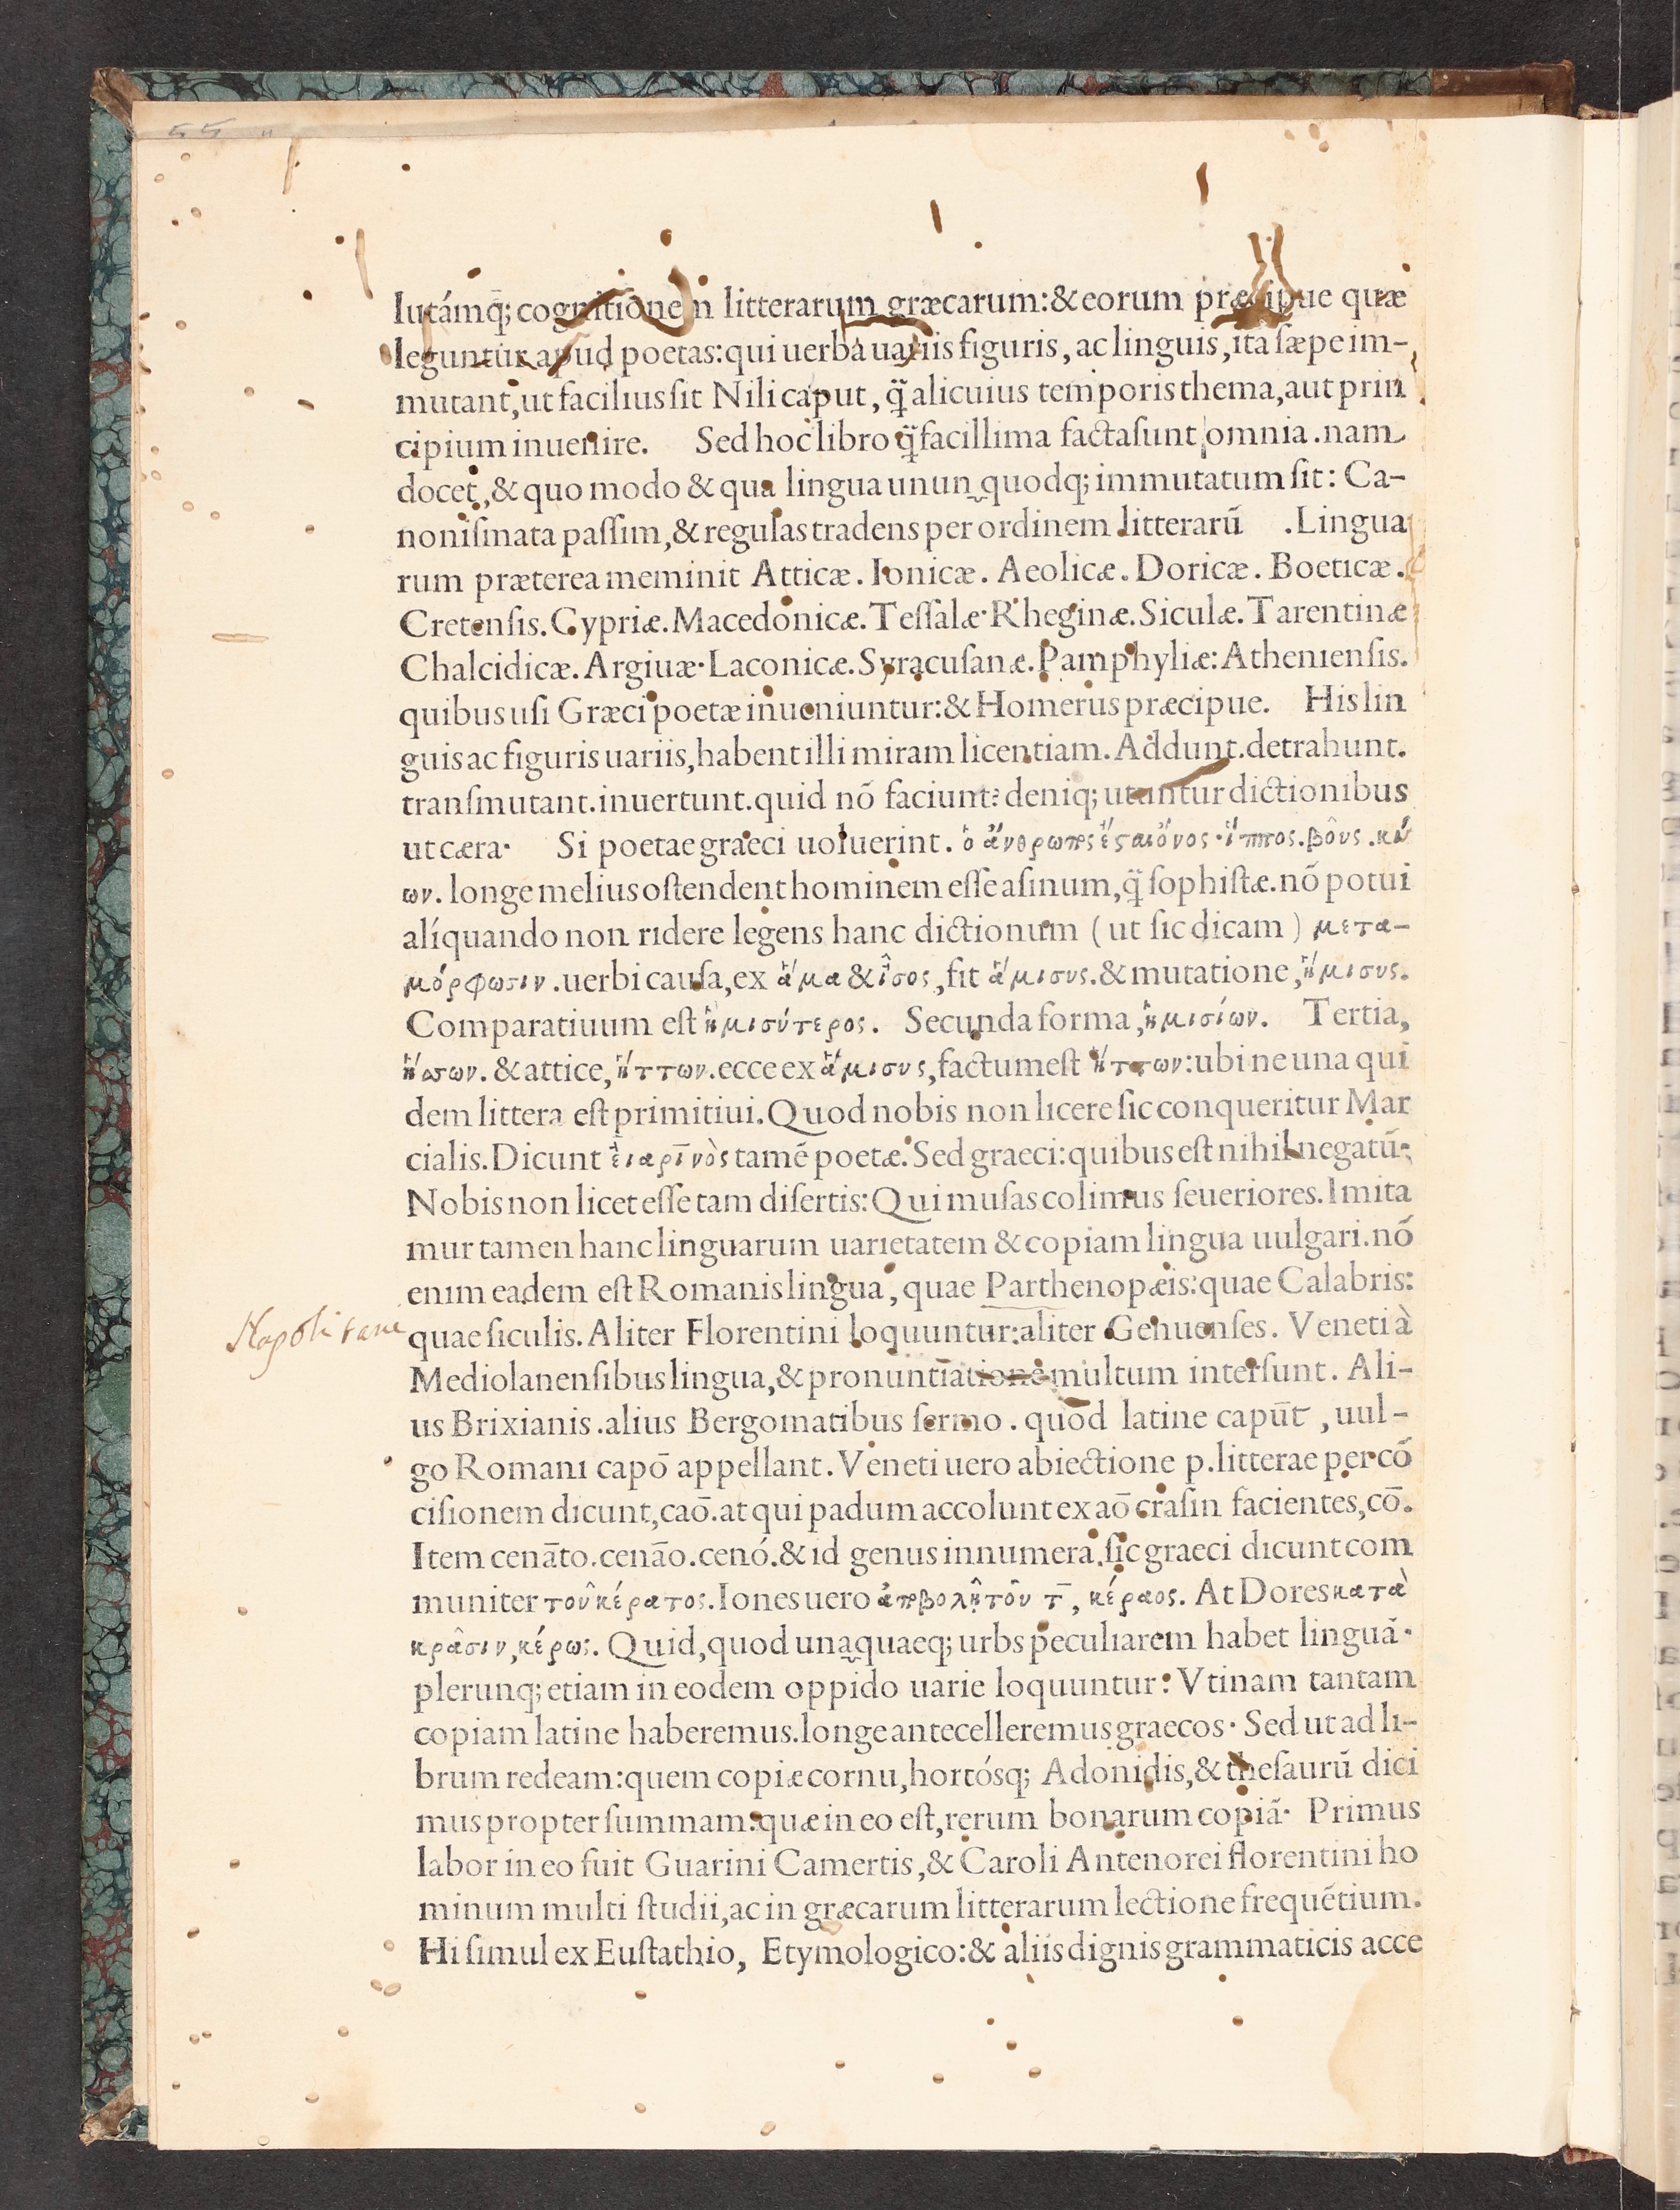 55
lutámq; cognitionem litterarum græcarum:& eorum præcipue quæ
leguntur apud poetas: qui uerba uariis figuris, ac linguis, ita sæpe im-
mutant, ut facilius sit Nili caput, q̃ alicuius temporis thema, aut prin
cipium inuenire. Sed hoc libro q̃ facillima facta sunt omnia. nam
docet, & quo modo & qua lingua unun quodq; immutatum sit: Ca-
nonismata passim, & regulas tradens per ordinem litterarũ . Lingua
rum præterea meminit Atticæ. Ionicæ. Aeolicæ. Doricæ. Boeticæ.
Cretensis. Cypriæ. Macedonicæ. Tessalæ· Rheginæ. Siculæ. Tarentinæ
Chalcidicæ. Argiuæ· Laconicæ. Syracusanæ. Pamphyliæ: Atheniensis.
quibus usi Græci poetæ inueniuntur:& Homerus præcipue. His lin
guis ac figuris uariis, habent illi miram licentiam. Addunt. detrahunt.
transmutant. inuertunt. quid nõ faciunt? deniq; utuntur dictionibus
ut cæra· Si poetae graeci uoluerint. ὁ ἄνθρωπος ἔσται ὄνος· ἵππος. βοῦς. κύ
ων. longe melius ostendent hominem esse asinum, q̃ sophistæ. nõ potui
alíquando non ridere legens hanc dictionum ( ut sic dicam ) μετα-
μόρφωσιν. uerbi causa, ex ἅμα & ἶσος, fit ἅμισυς. & mutatione, ἥμισυς.
Comparatiuum est ἡμισύτερος. Secunda forma, ἡμισίων. Tertia,
ἥσσων. & attice, ἥττων. ecce ex ἅμισυς, factum est ἥττων: ubi ne una qui
dem littera est primitiui. Quod nobis non licere sic conqueritur Mar
cialis. Dicunt ἐιαρῑνὸς tamẽ poetæ. Sed graeci: quibus est nihil negatũ;
Nobis non licet esse tam disertis: Qui musas colimus seueriores. Imita
mur tamen hanc linguarum uarietatem & copiam lingua uulgari. nõ
enim eadem est Romanis lingua, quae Parthenopæis: quae Calabris:
Napolitane
quae siculis. Aliter Florentini loquuntur: aliter Genuenses. Veneti à
Mediolanensibus lingua, & pronuntiatione multum intersunt. Ali-
us Brixianis. alius Bergomatibus sermo. quod latine capūt, uul-
go Romani capō appellant. Veneti uero abiectione p. litterae per cõ
cisionem dicunt, caō. at qui padum accolunt ex aō crasin facientes, cō.
Item cenāto. cenāo. cenó. & id genus innumera. sic graeci dicunt com
muniter τοῦ κέρατος. Iones uero ἀποβολῇ τοῦ τ̄, κέραος. At Dores κατὰ
κρᾶσιν, κέρως. Quid, quod una quaeq; urbs peculiarem habet linguã·
plerunq; etiam in eodem oppido uarie loquuntur: Vtinam tantam
copiam latine haberemus. longe antecelleremus graecos· Sed ut ad li-
brum redeam: quem copiæ cornu, hortósq; Adonidis, & thesaurũ dici
mus propter summam: quæ in eo est, rerum bonarum copiã· Primus
labor in eo fuit Guarini Camertis, & Caroli Antenorei florentini ho
minum multi studii, ac in græcarum litterarum lectione frequẽtium.
Hi simul ex Eustathio, Etymologico: & aliis dignis grammaticis acce